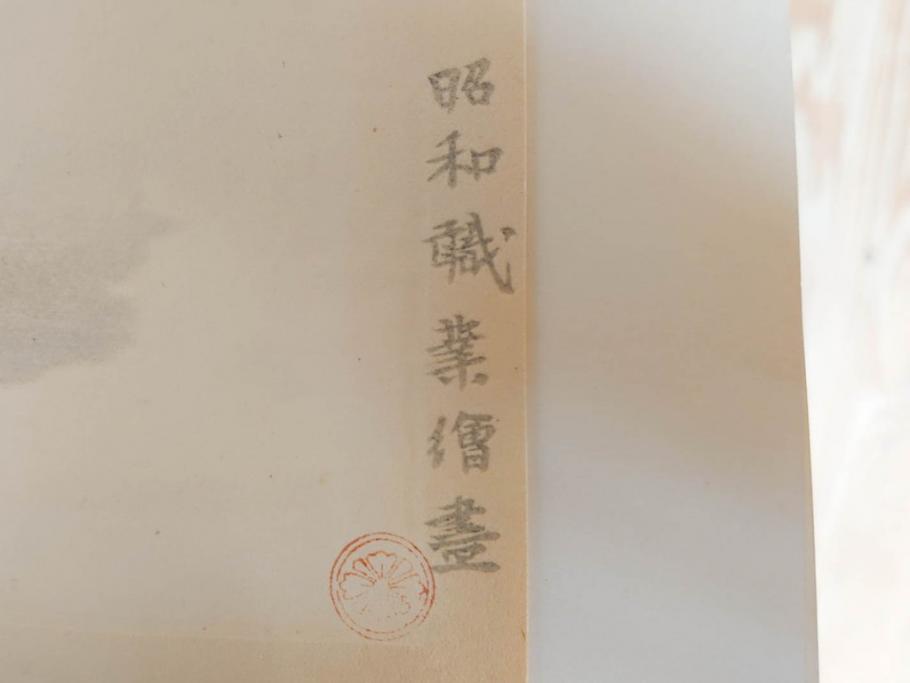 昭和職業繪畫